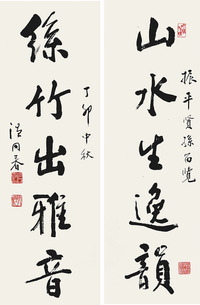 山水生逸韻
振平賢孫留覽
絲竹出雅音
丁卯中秋